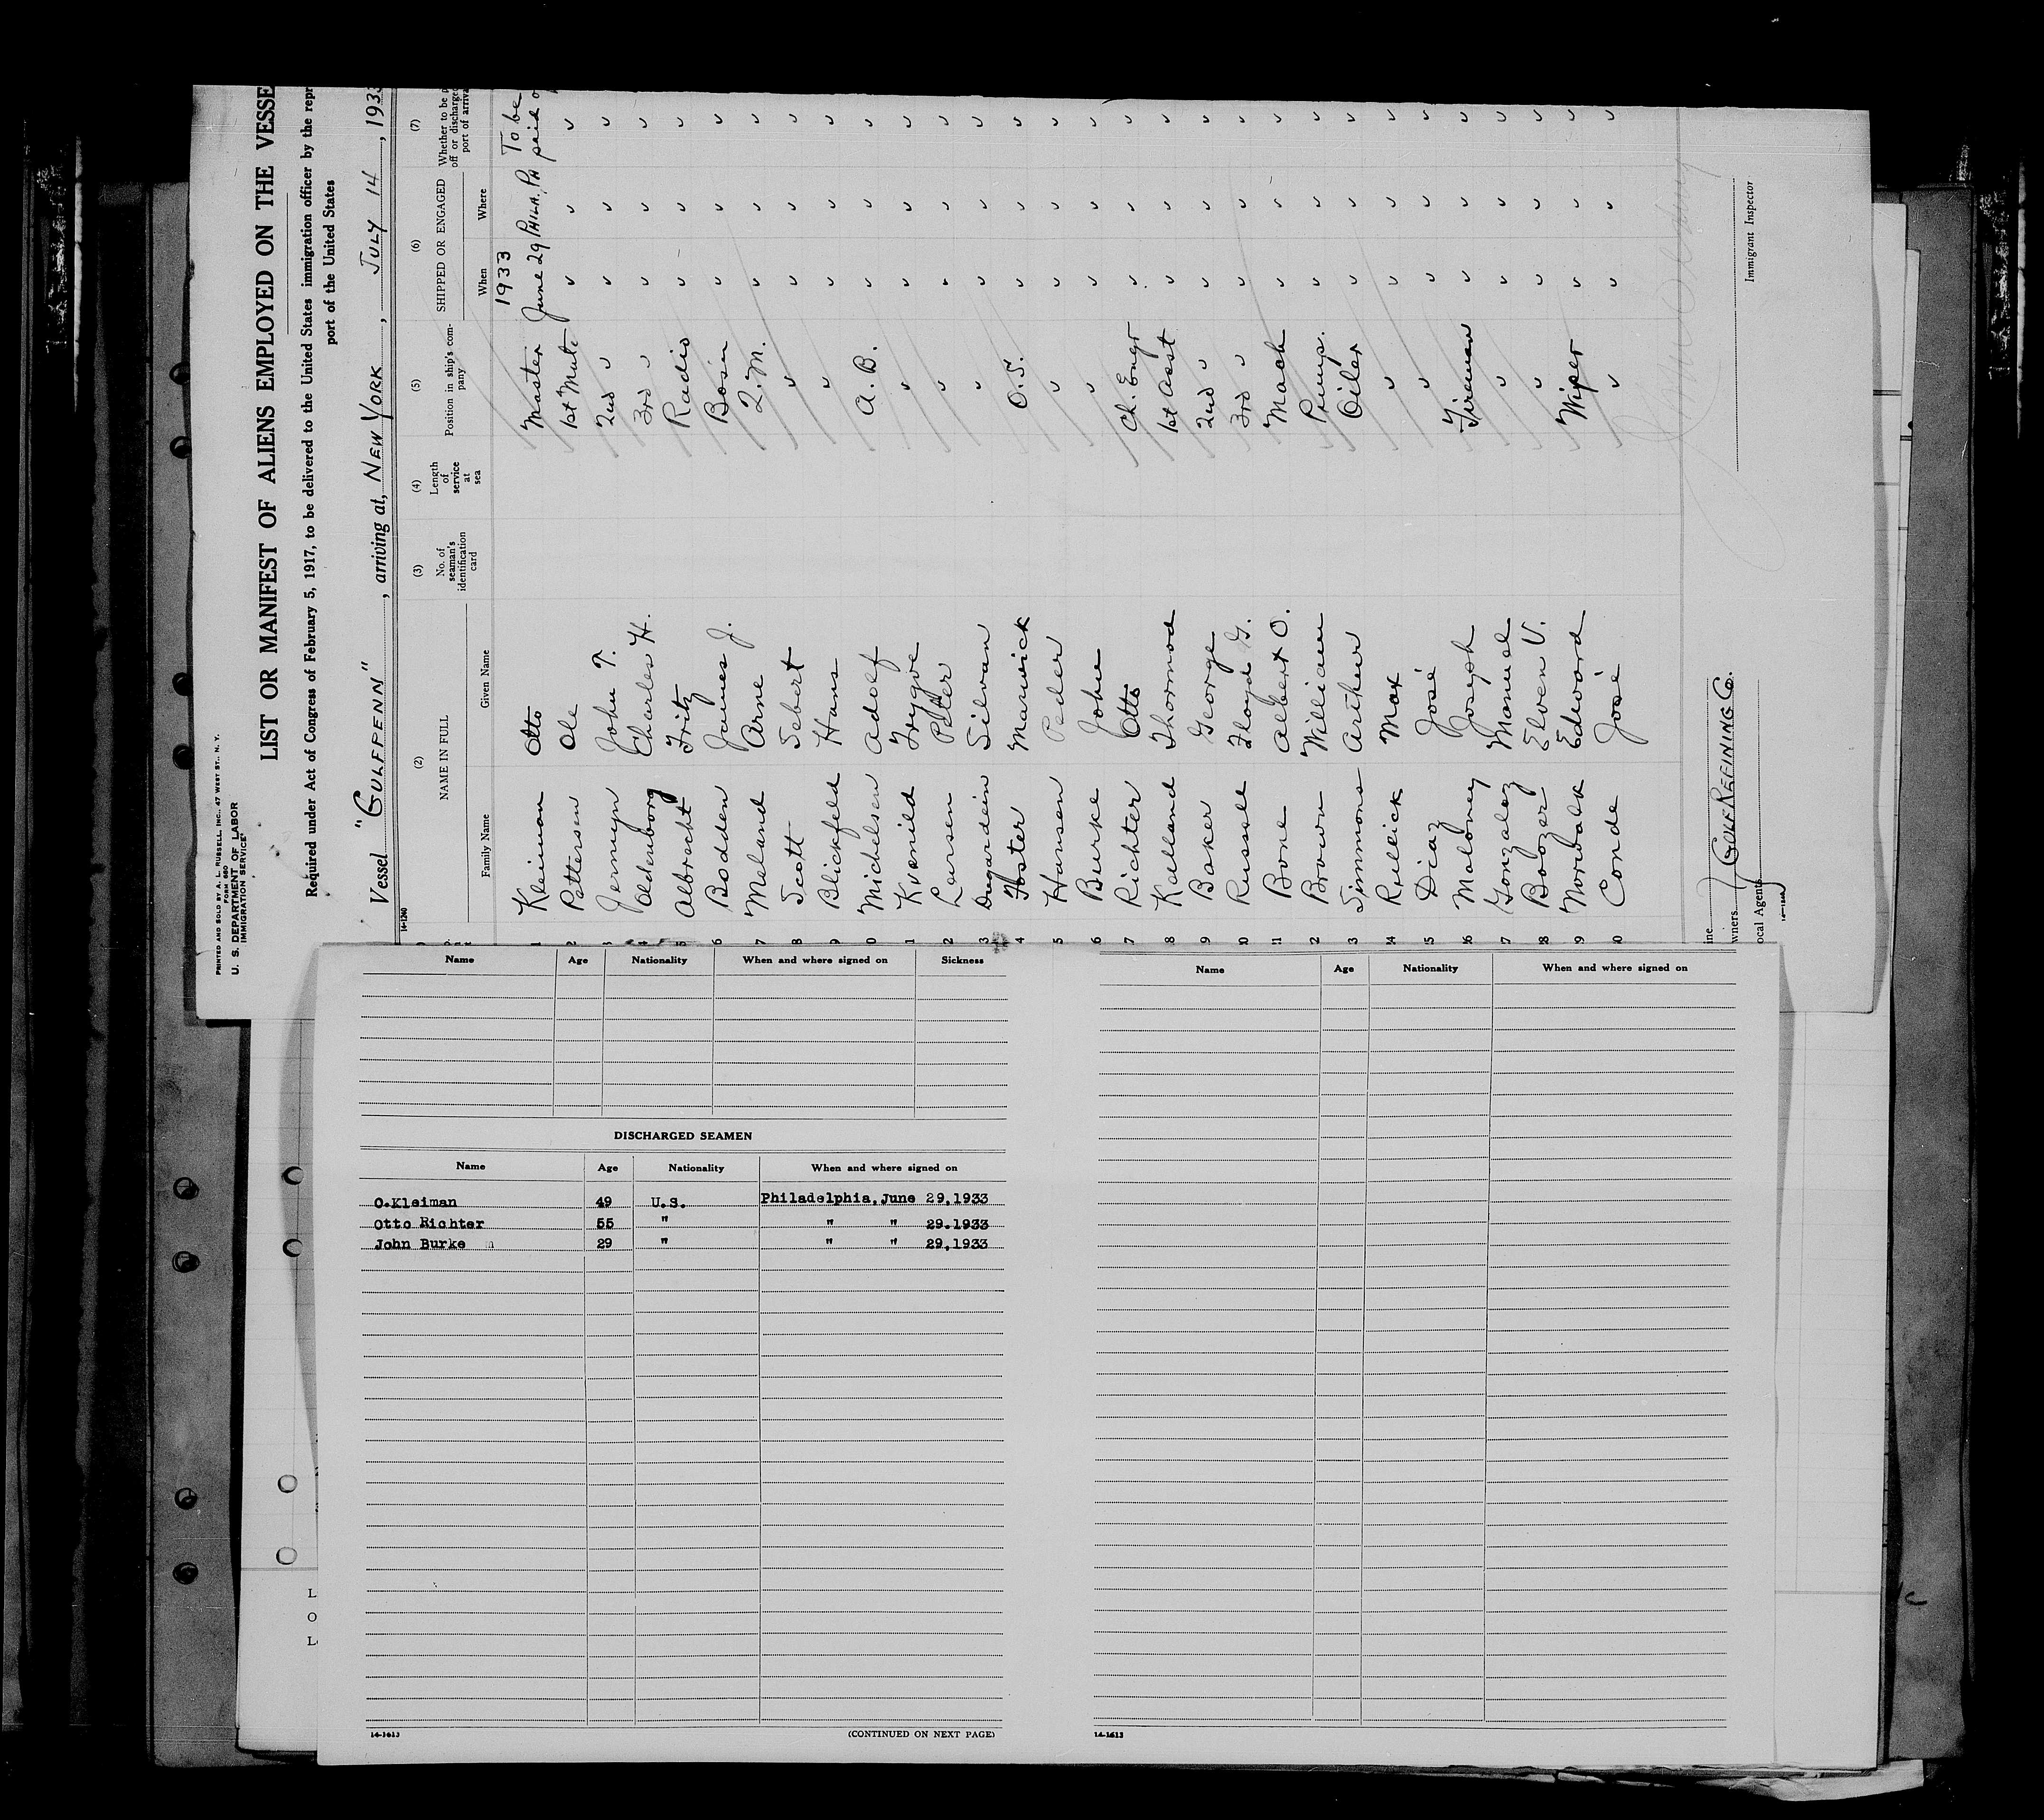 PRINTED AND SOLD BY A. L. RUSSELL, INC., 47 WEST ST., N. Y.
FORM 680
U. S. DEPARTMENT OF LABOR
IMMIGRATION SERVICE
LIST OR MANIFEST OF ALIENS EMPLOYED ON THE VESSE
Required under Act of Congress of February 5, 1917, to be delivered to the United States immigration officer by the repr
port of the United States
Vessel "GULFPENN", arriving at, NEW YORK, JULY 14, 193
14-1240
(2) (3) (4) (5) (6) (7)
NAME IN FULL No. of seaman's identification card Length of service at sea Position in ship's company SHIPPED OR ENGAGED Whether to be off or discharged port of arriva
Family Name Given Name When Where
1933
1 Kleiman Otto Master June 29 PHILA, PA To be paid o
2 Pettersen Ole 1st Mate ✓ ✓ ✓
3 Jermyn John T. 2nd ✓ ✓ ✓ ✓
4 Oldenborg Charles H. 3rd ✓ ✓ ✓ ✓
5 Albrecht Fritz Radio ✓ ✓ ✓
6 Bodden James J. Bosin ✓ ✓ ✓
7 Meland Arne Q.M. ✓ ✓ ✓
8 Scott Sebert ✓ ✓ ✓ ✓
9 Blickfeld Hans ✓ ✓ ✓ ✓
0 Michelsen Adolf A.B. ✓ ✓ ✓
1 Kvenild Trygve ✓ ✓ ✓ ✓
2 Larsen Peter ✓ ✓ ✓ ✓
3 Dugardein Silvan ✓ ✓ ✓ ✓
4 Foster Marwick O.S. ✓ ✓ ✓
5 Hansen Peder ✓ ✓ ✓ ✓
6 Burke John ✓ ✓ ✓ ✓
7 Richter Otto Ch. Engr ✓ ✓ ✓
8 Kalland Thormod 1st Asst ✓ ✓ ✓
9 Baker George 2nd ✓ ✓ ✓ ✓
0 Russell Floyd G. 3rd ✓ ✓ ✓ ✓
1 Bone Albert O. Mach ✓ ✓ ✓
2 Brown William Pump. ✓ ✓ ✓
3 Simmons Arthur Oiler ✓ ✓ ✓
4 Rellick Max ✓ ✓ ✓ ✓
5 Diaz José ✓ ✓ ✓ ✓
6 Maloney Joseph Fireman ✓ ✓ ✓
7 Gonzalez Manuel ✓ ✓ ✓ ✓
8 Boozer Elven V. ✓ ✓ ✓ ✓
9 Norwalk Edward Wiper ✓ ✓ ✓
0 Conde José ✓ ✓ ✓ ✓
ine
wners GULF REFINING Co.
ocal Agents
Immigrant Inspector
Name Age Nationality When and where signed on Sickness
DISCHARGED SEAMEN
Name Age Nationality When and where signed on
O.Kleiman 49 U.S. Philadelphia,June 29,1933
Otto Richter 55 " " " 29.1933
John Burke 29 " " " 29,1933
14-1613 (CONTINUED ON NEXT PAGE)
Name Age Nationality When and where signed on
14-1613
L
O
L